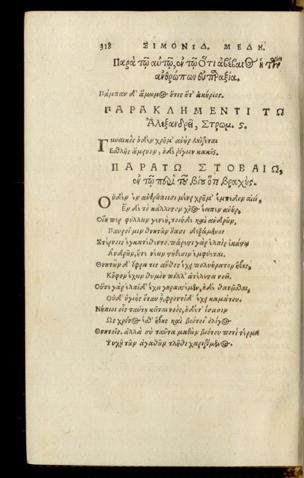 318 ΣΙΜΟΝΙΔ. ΜΕΔΗ.
Παρὰ τῷ αὐτῷ, ἐν τῷ ὅτι ἀβέβαιος ἡ τῶν
ἀνθρώπων εὐπραξία.
Πάμπαν δ' ἄμωμος οὔτις οὐδ' ἀκήριος.
ΠΑΡΑ ΚΛΗΜΕΝΤΙ ΤΩ
Ἀλεξανδρεῖ, Στρωμ. ς.
Γυναικὸς οὐδὲν χρῆμ' ἀνὴρ ληΐζεται
Ἐσθλῆς ἄμεινον, οὐδὲ ῥίγιον κακῆς.
ΠΑΡΑ ΤΩ ΣΤΟΒΑΙΩ,
ἐν τῷ περὶ τοῦ βίου ὅτι βραχύς.
Οὐδὲν ἐν ἀνθρώποισι μένει χρῆμ' ἔμπεδον αἰεί,
Ἓν δὲ τὸ κάλλιστον χῖος ἔειπεν ἀνήρ,
Οἵη περ φύλλων γενεὴ, τοιήδε καὶ ἀνδρῶν,
Παῦροι μὲν θνητῶν οὔασι δεξάμενοι
Στέρνοις ἐγκατέθεντο. πάρεστι γὰρ ἐλπὶς ἑκάστῳ
Ἀνδρῶν, ἥτε νέων στήθεσιν ἐμφύεται.
Θνητῶν δ' ὄφρα τις ἄνθος ἔχῃ πολυήρατον ἥβης,
Κοῦφον ἔχων θυμὸν πόλλ' ἀτέλεστα νοεῖ.
Οὔτε γὰρ ἐλπίδ' ἔχει γηρασέμεν, οὐδὲ θανεῖσθαι,
Οὐδ' ὑγιὴς ὅταν ᾖ, φροντίδ' ἔχει καμάτου.
Νήπιοι οἷς ταύτῃ κεῖται νόος, οὐδέ τ' ἴσασιν
Ὡς χρόνος ἔσθ' ἥβης καὶ βιότου ὀλίγος
Θνητοῖς. ἀλλὰ σὺ ταῦτα μαθὼν βιότου ποτὶ τέρμα
Ψυχῇ τῶν ἀγαθῶν τλῆθι χαριζόμενος.